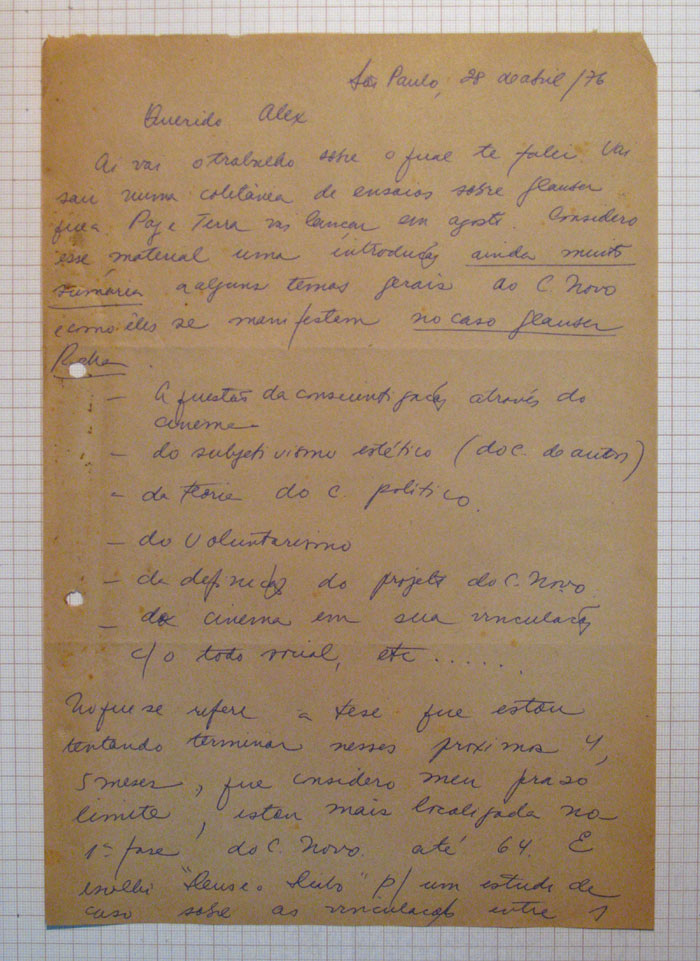 São Paulo, 28 de abril /76
Querido Alex
Aí vai o trabalho sobre o qual te falei. Vai
sair numa coletânea de ensaios sobre Glauber
que a Paz e Terra vai lançar em agosto. Considero
esse material uma introdução ainda muito
sumária a alguns temas gerais do C. Novo
e como êles se manifestam no caso Glauber
Rocha.
– A questão da conscientização através do
cinema
– do subjetivismo estético (do C. de autor)
– da teoria do C. político.
– do voluntarismo
– da definição do projeto do C. Novo
– do cinema em sua vinculação
c/ o todo social, etc ......
No que se refere a tese que estou
tentando terminar nesses proximos 4,
5 meses, que considero meu prazo
limite, estou mais localizada na
1ª fase do C. Novo até 64. E
escolhi "Deus e o Diabo" p/ um estudo de
caso sobre as vinculações entre